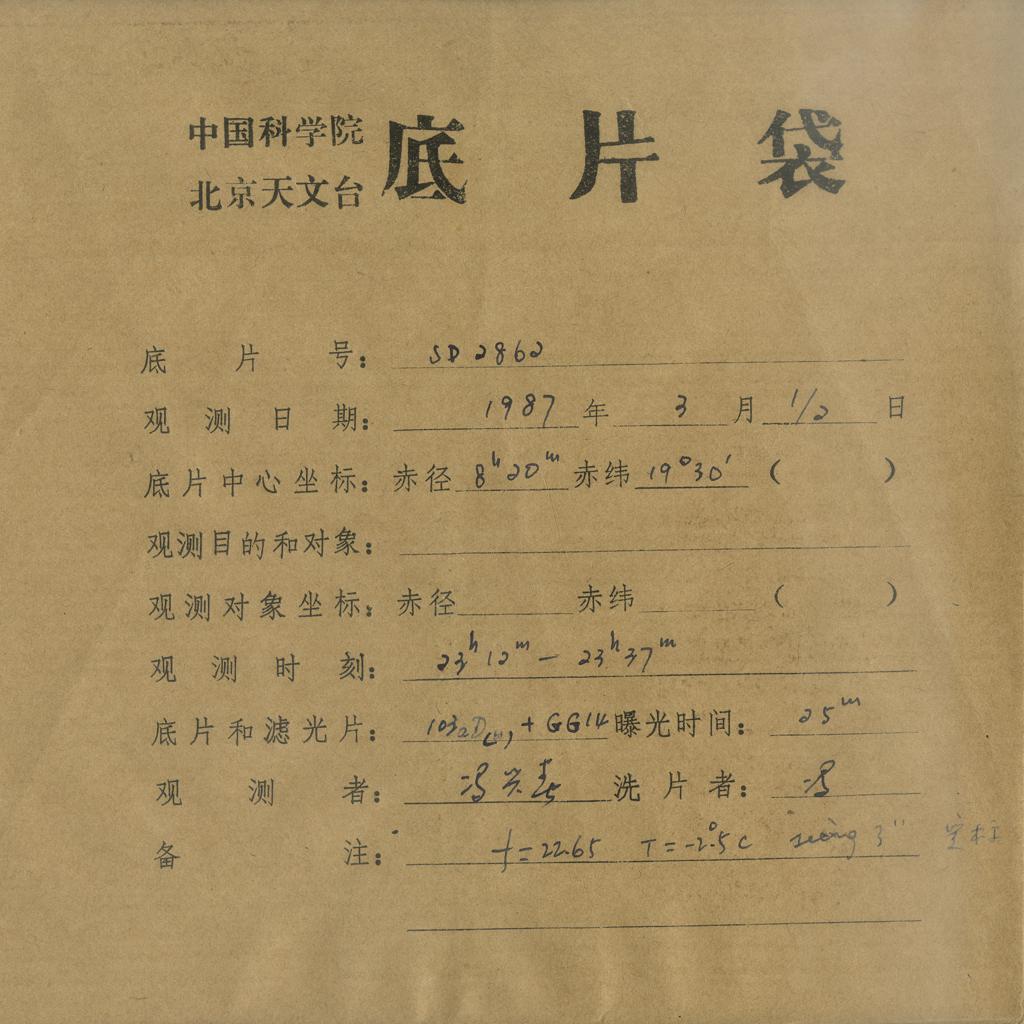 中国科学院
北京天文台
底片袋
底片号: SD 2862
观测日期: 1987年3月1/2日
底片中心坐标: 赤径 8ʰ20ᵐ 赤纬 19°30′ ( )
观测目的和对象:
观测对象坐标: 赤径 赤纬 ( )
观测时刻: 23ʰ12ᵐ — 23ʰ37ᵐ
底片和滤光片: 103aD + GG14 曝光时间: 25ᵐ
观测者: 冯兴春 洗片者: 冯
备注: f=22.65 T=-2.5°C seeing 3″ 定标